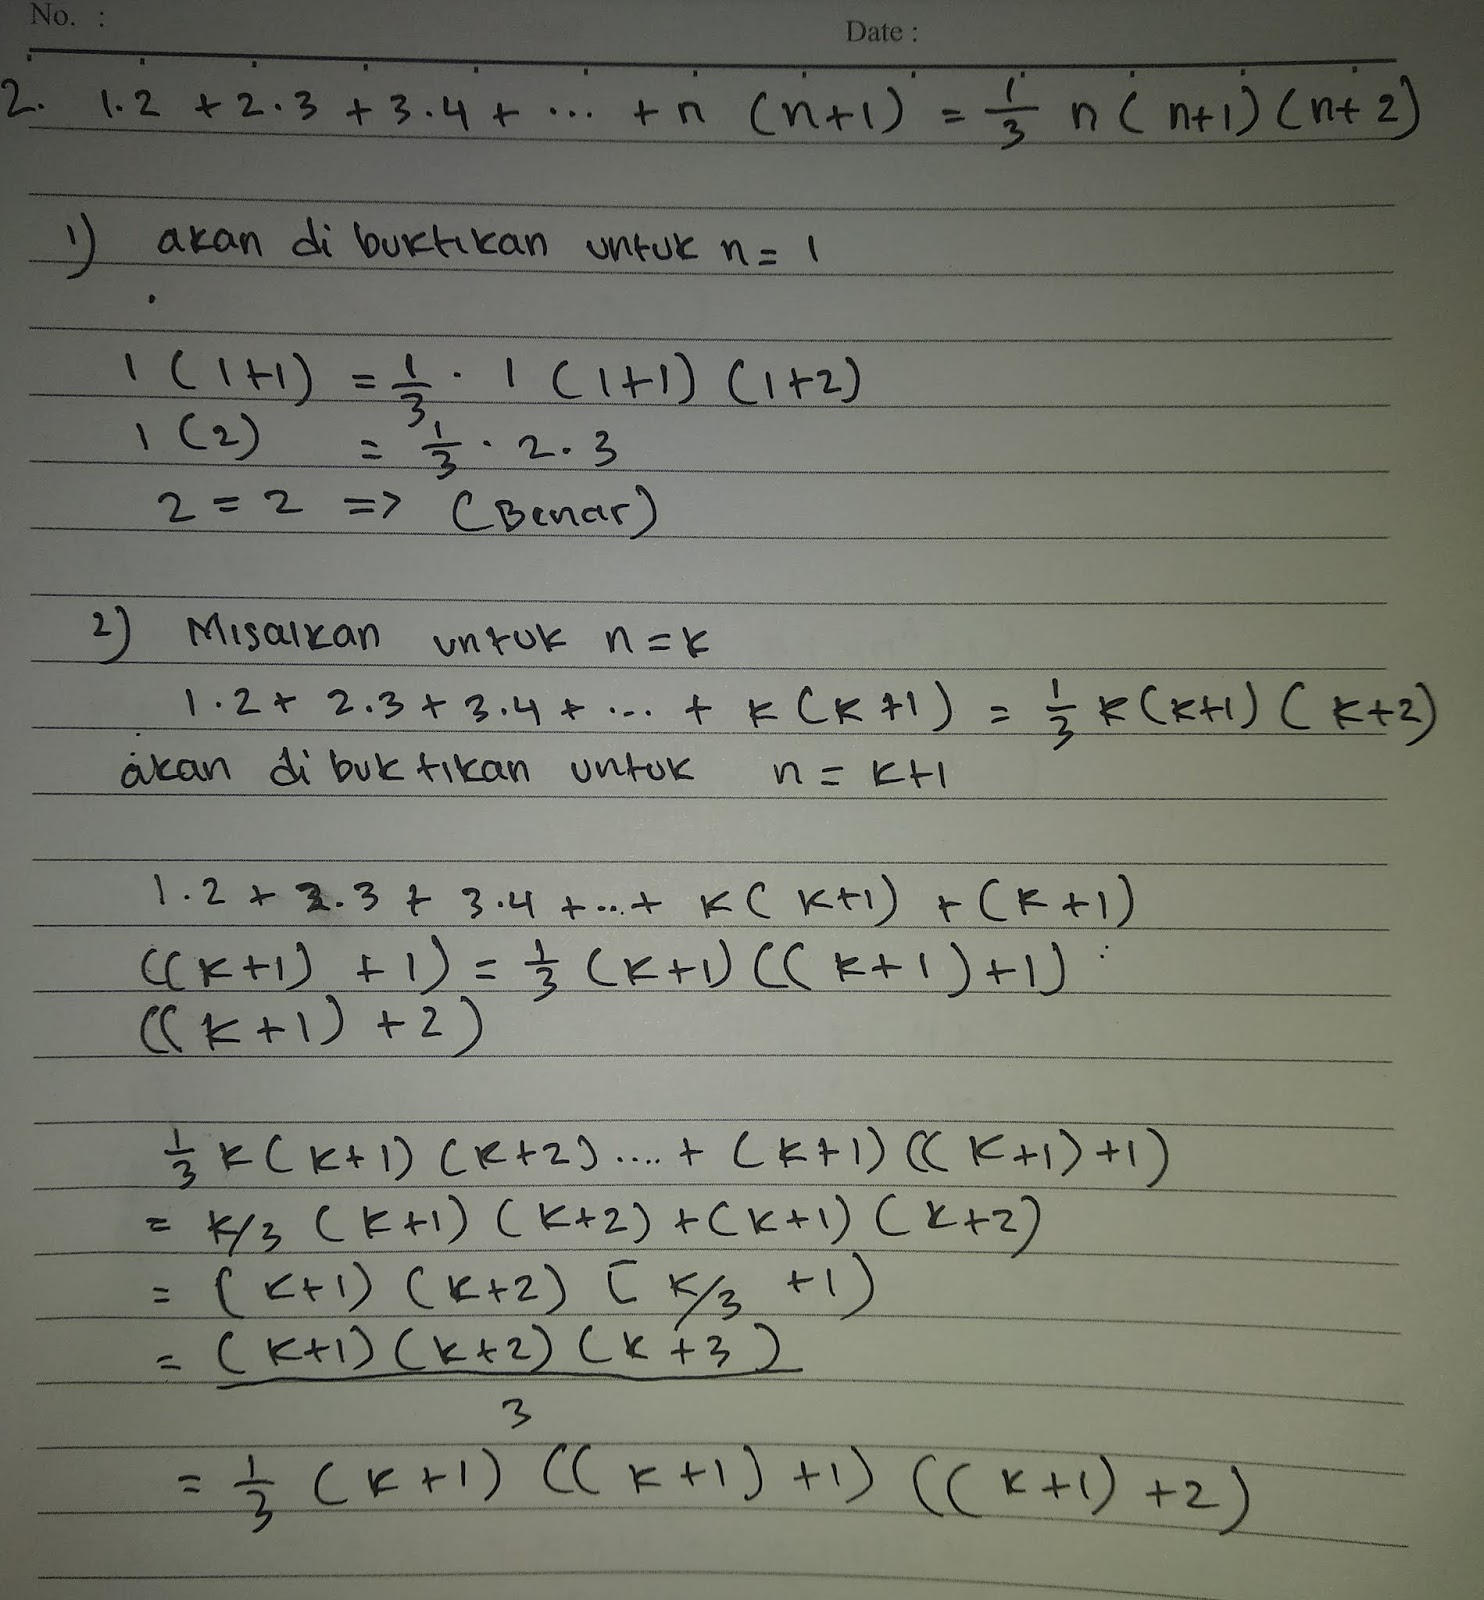 No. :
Date :
2. 1.2 + 2.3 + 3.4 + ... + n (n+1) = 1/3 n (n+1) (n+2)
1) akan di buktikan untuk n = 1
1 (1+1) = 1/3 . 1 (1+1) (1+2)
1 (2) = 1/3 . 2.3
2 = 2 => (Benar)
2) Misalkan untuk n = k
1.2 + 2.3 + 3.4 + ... + k (k+1) = 1/3 k (k+1) (k+2)
akan di buktikan untuk n = k+1
1.2 + 2.3 + 3.4 + ... + k (k+1) + (k+1)
((k+1) + 1) = 1/3 (k+1) ((k+1) +1)
((k+1) +2)
1/3 k (k+1) (k+2) .... + (k+1) ((k+1) +1)
= k/3 (k+1) (k+2) + (k+1) (k+2)
= (k+1) (k+2) [ k/3 +1)
= (k+1) (k+2) (k+3)
3
= 1/3 (k+1) ((k+1) +1) ((k+1) +2)